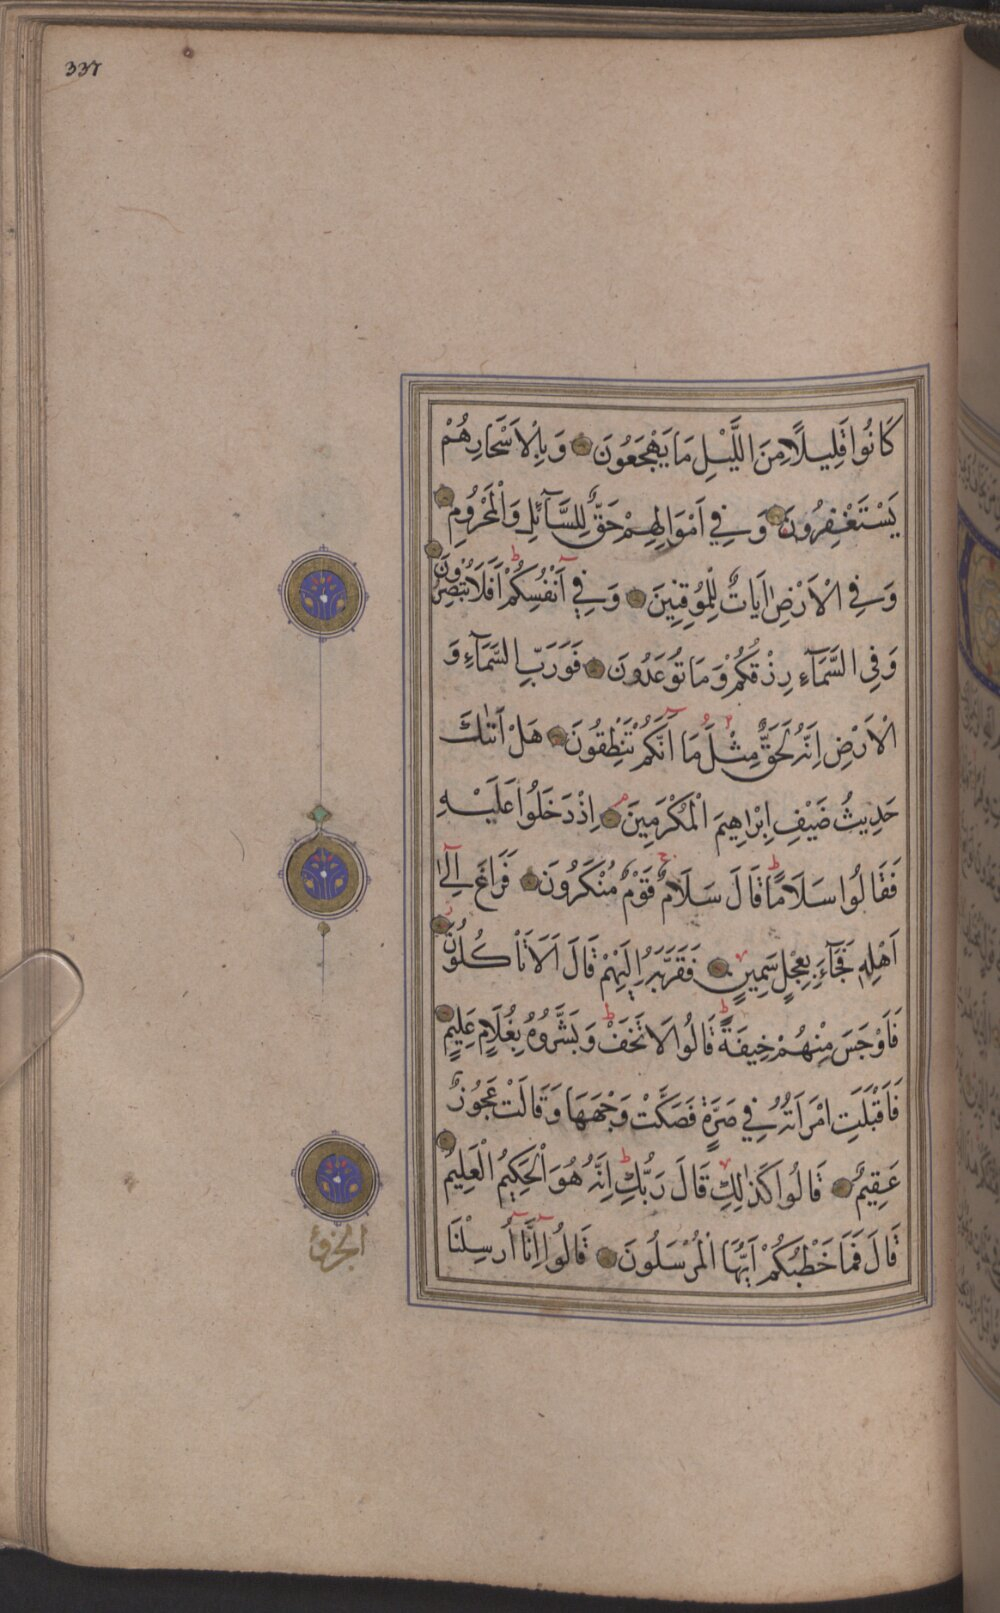 337
كَانُوا قَلِيلًا مِنَ اللَّيْلِ مَا يَهْجَعُونَ وَبِالْاَسْحَارِ هُمْ
يَسْتَغْفِرُونَ وَفِي اَمْوَالِهِمْ حَقٌّ لِلسَّآئِلِ وَالْمَحْرُومِ
وَفِي الْاَرْضِ اٰيَاتٌ لِلْمُوقِنِينَ وَفِي اَنْفُسِكُمْ اَفَلَا تُبْصِرُونَ
وَفِي السَّمَآءِ رِزْقُكُمْ وَمَا تُوعَدُونَ فَوَرَبِّ السَّمَآءِ وَ
الْاَرْضِ اِنَّهُ لَحَقٌّ مِثْلَ مَا اَنَّكُمْ تَنْطِقُونَ هَلْ اَتٰيكَ
حَدِيثُ ضَيْفِ اِبْرَاهِيمَ الْمُكْرَمِينَ اِذْ دَخَلُوا عَلَيْهِ
فَقَالُوا سَلَامًا قَالَ سَلَامٌ قَوْمٌ مُنْكَرُونَ فَرَاغَ اِلٰٓى
اَهْلِهِ فَجَآءَ بِعِجْلٍ سَمِينٍ فَقَرَّبَهُ اِلَيْهِمْ قَالَ اَلَا تَاْكُلُونَ
فَاَوْجَسَ مِنْهُمْ خِيفَةً قَالُوا لَا تَخَفْ وَبَشَّرُوهُ بِغُلَامٍ عَلِيمٍ
فَاَقْبَلَتِ امْرَاَتُهُ فِي صَرَّةٍ فَصَكَّتْ وَجْهَهَا وَقَالَتْ عَجُوزٌ
عَقِيمٌ قَالُوا كَذٰلِكِ قَالَ رَبُّكِ اِنَّهُ هُوَ الْحَكِيمُ الْعَلِيمُ
قَالَ فَمَا خَطْبُكُمْ اَيُّهَا الْمُرْسَلُونَ قَالُوا اِنَّا اُرْسِلْنَا
الجزؤ